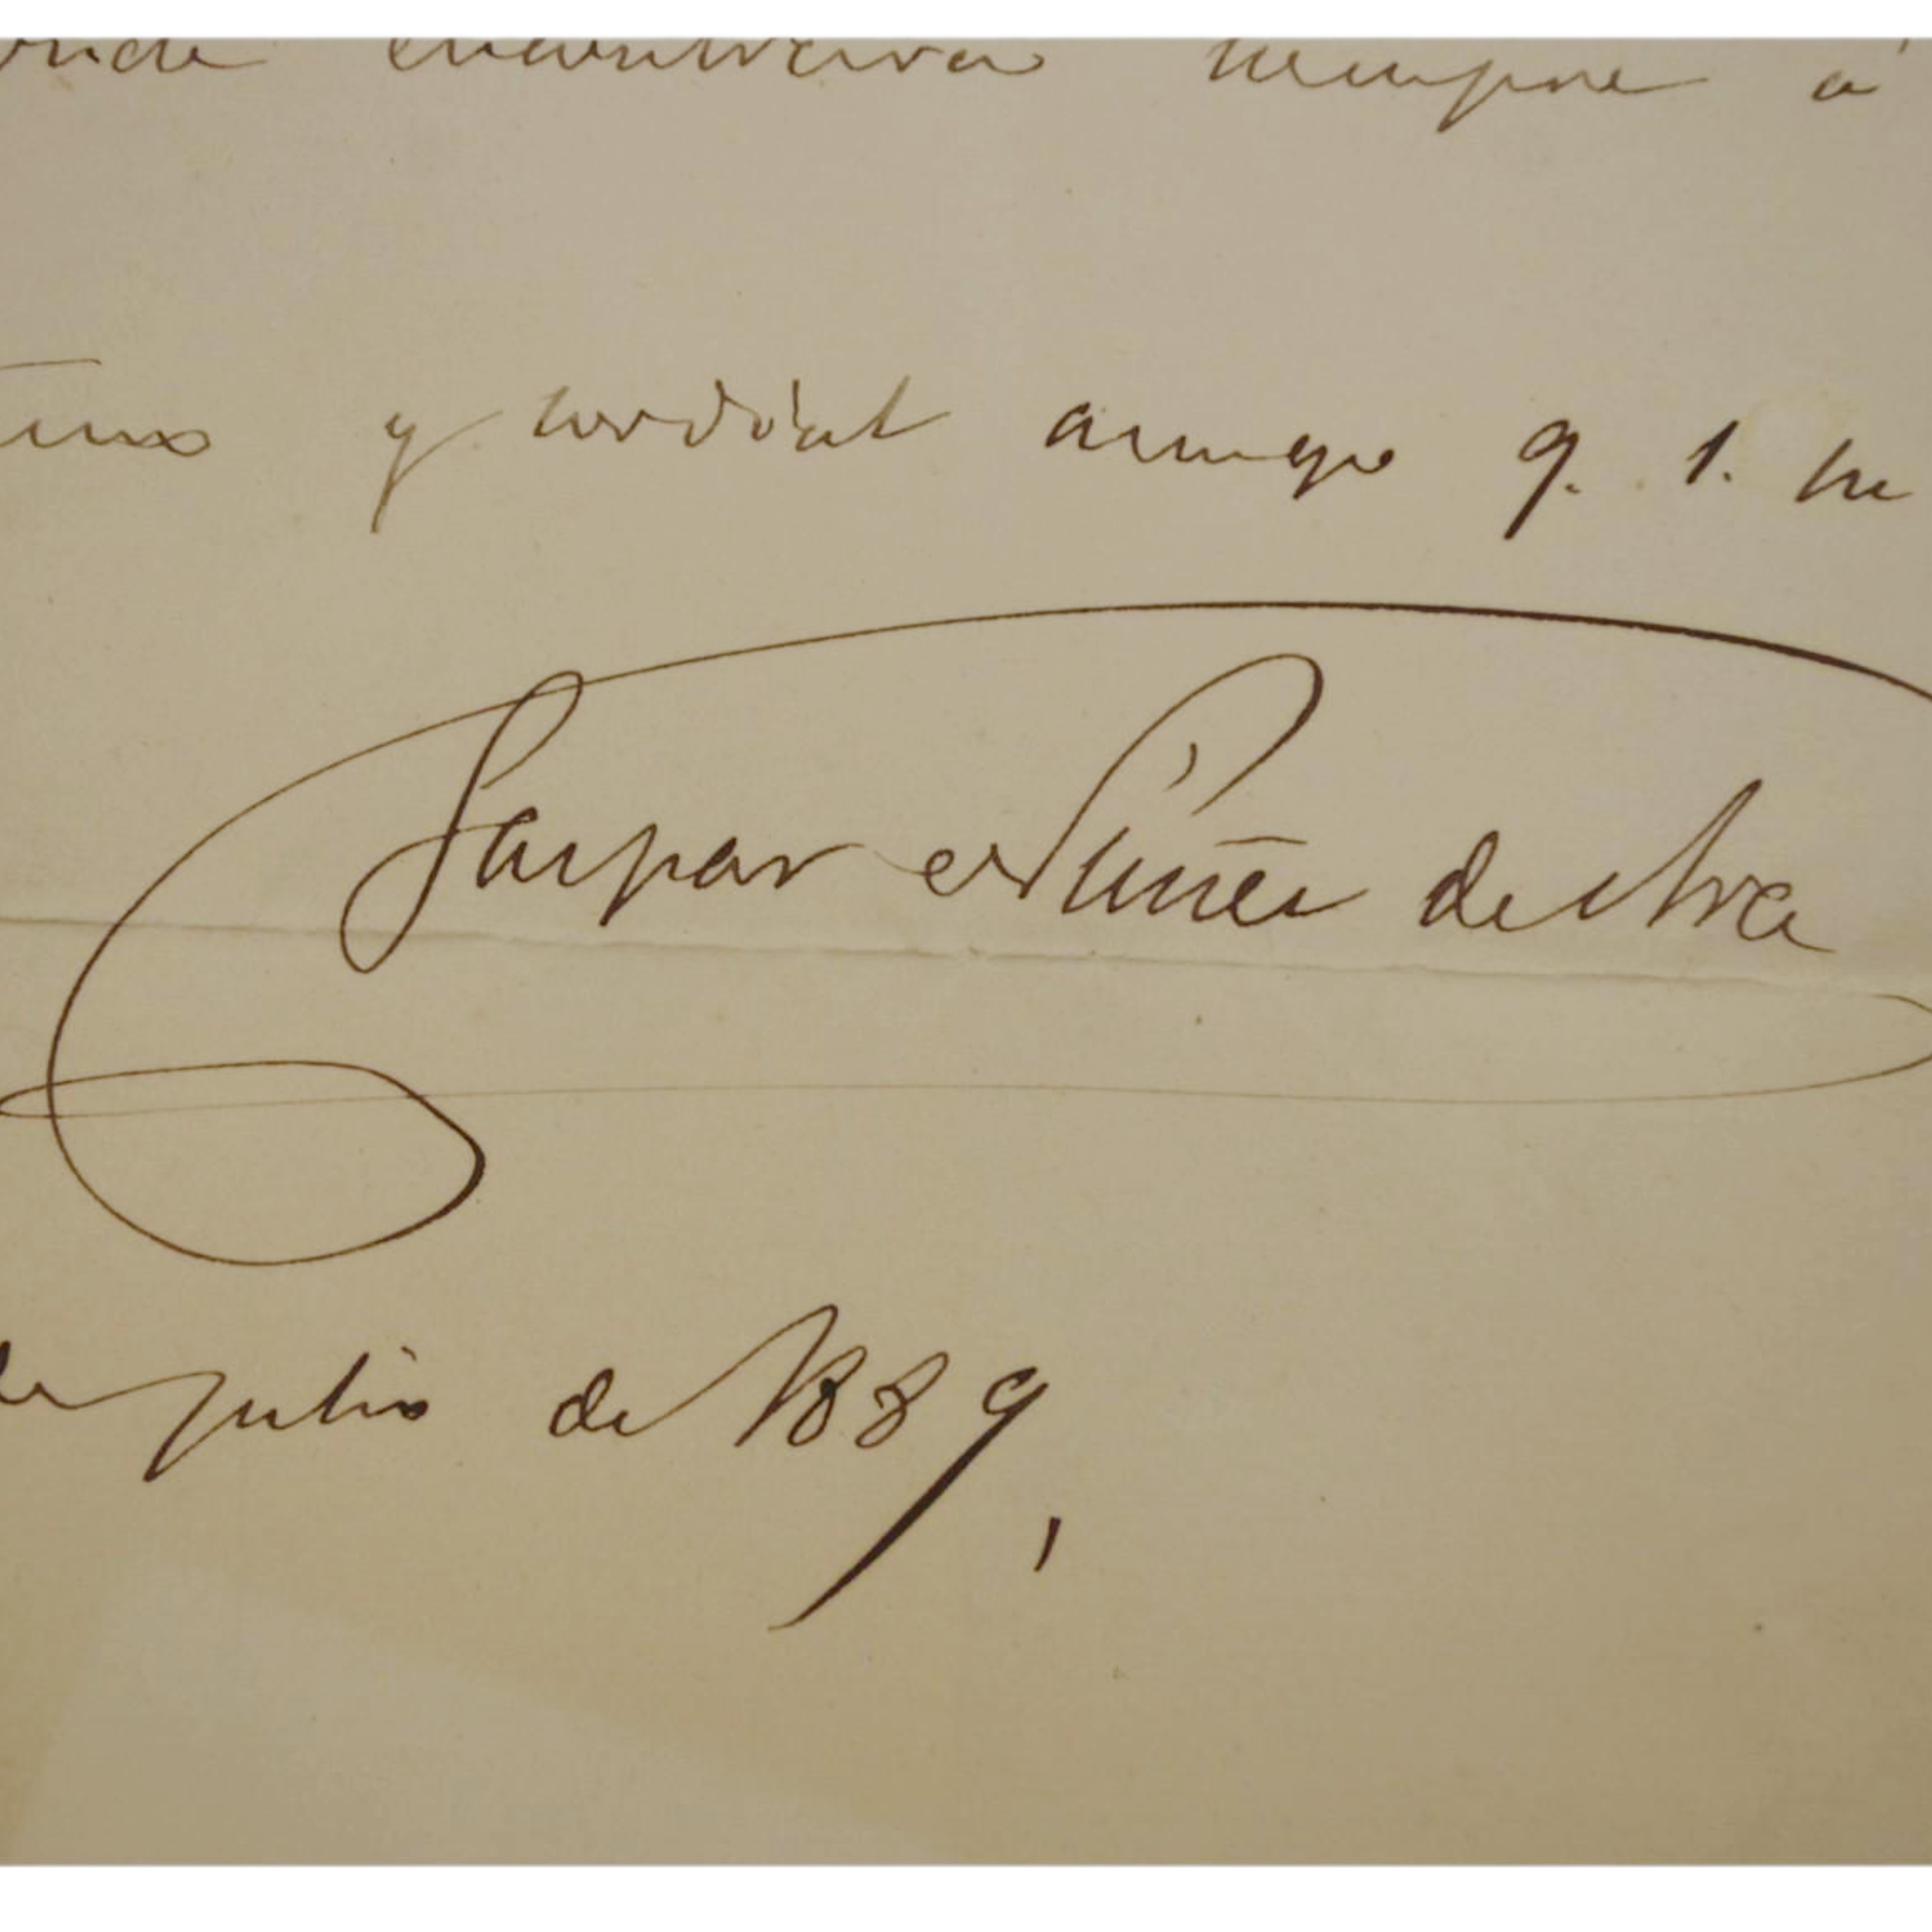 encontrará siempre á
y cordial amigo q. s. m
Gaspar Núñez de Arce
de julio de 1889,